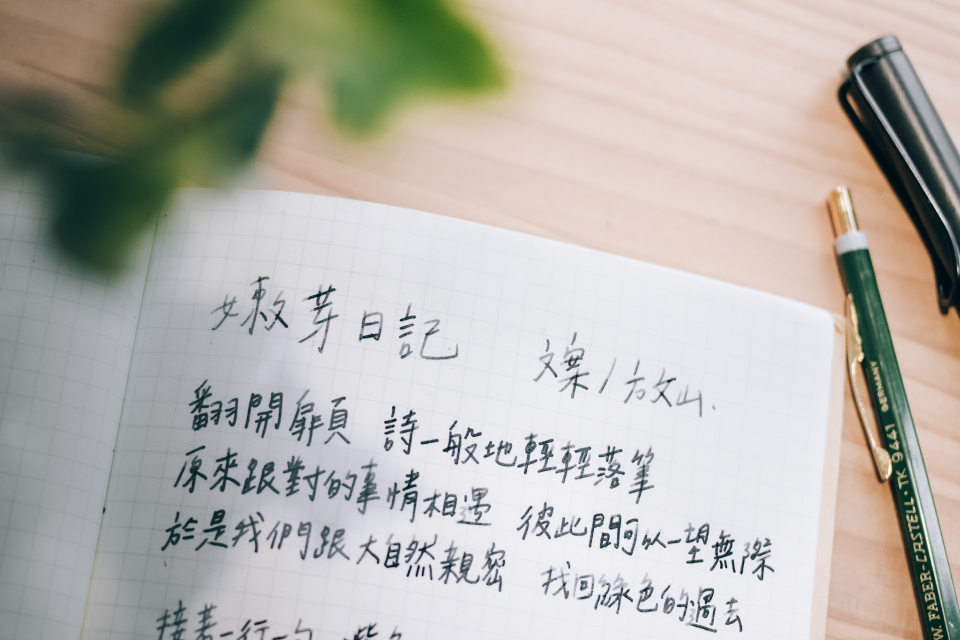 嫩芽日記 文案/放山.
翻開扉頁 詩一般地輕輕落筆
原來跟對的事情相遇 彼此間可以一望無際
於是我們跟大自然親密 找回綠色的過去
接著一行一句
W. FABER-CASTELL · TK 9441 GERMANY